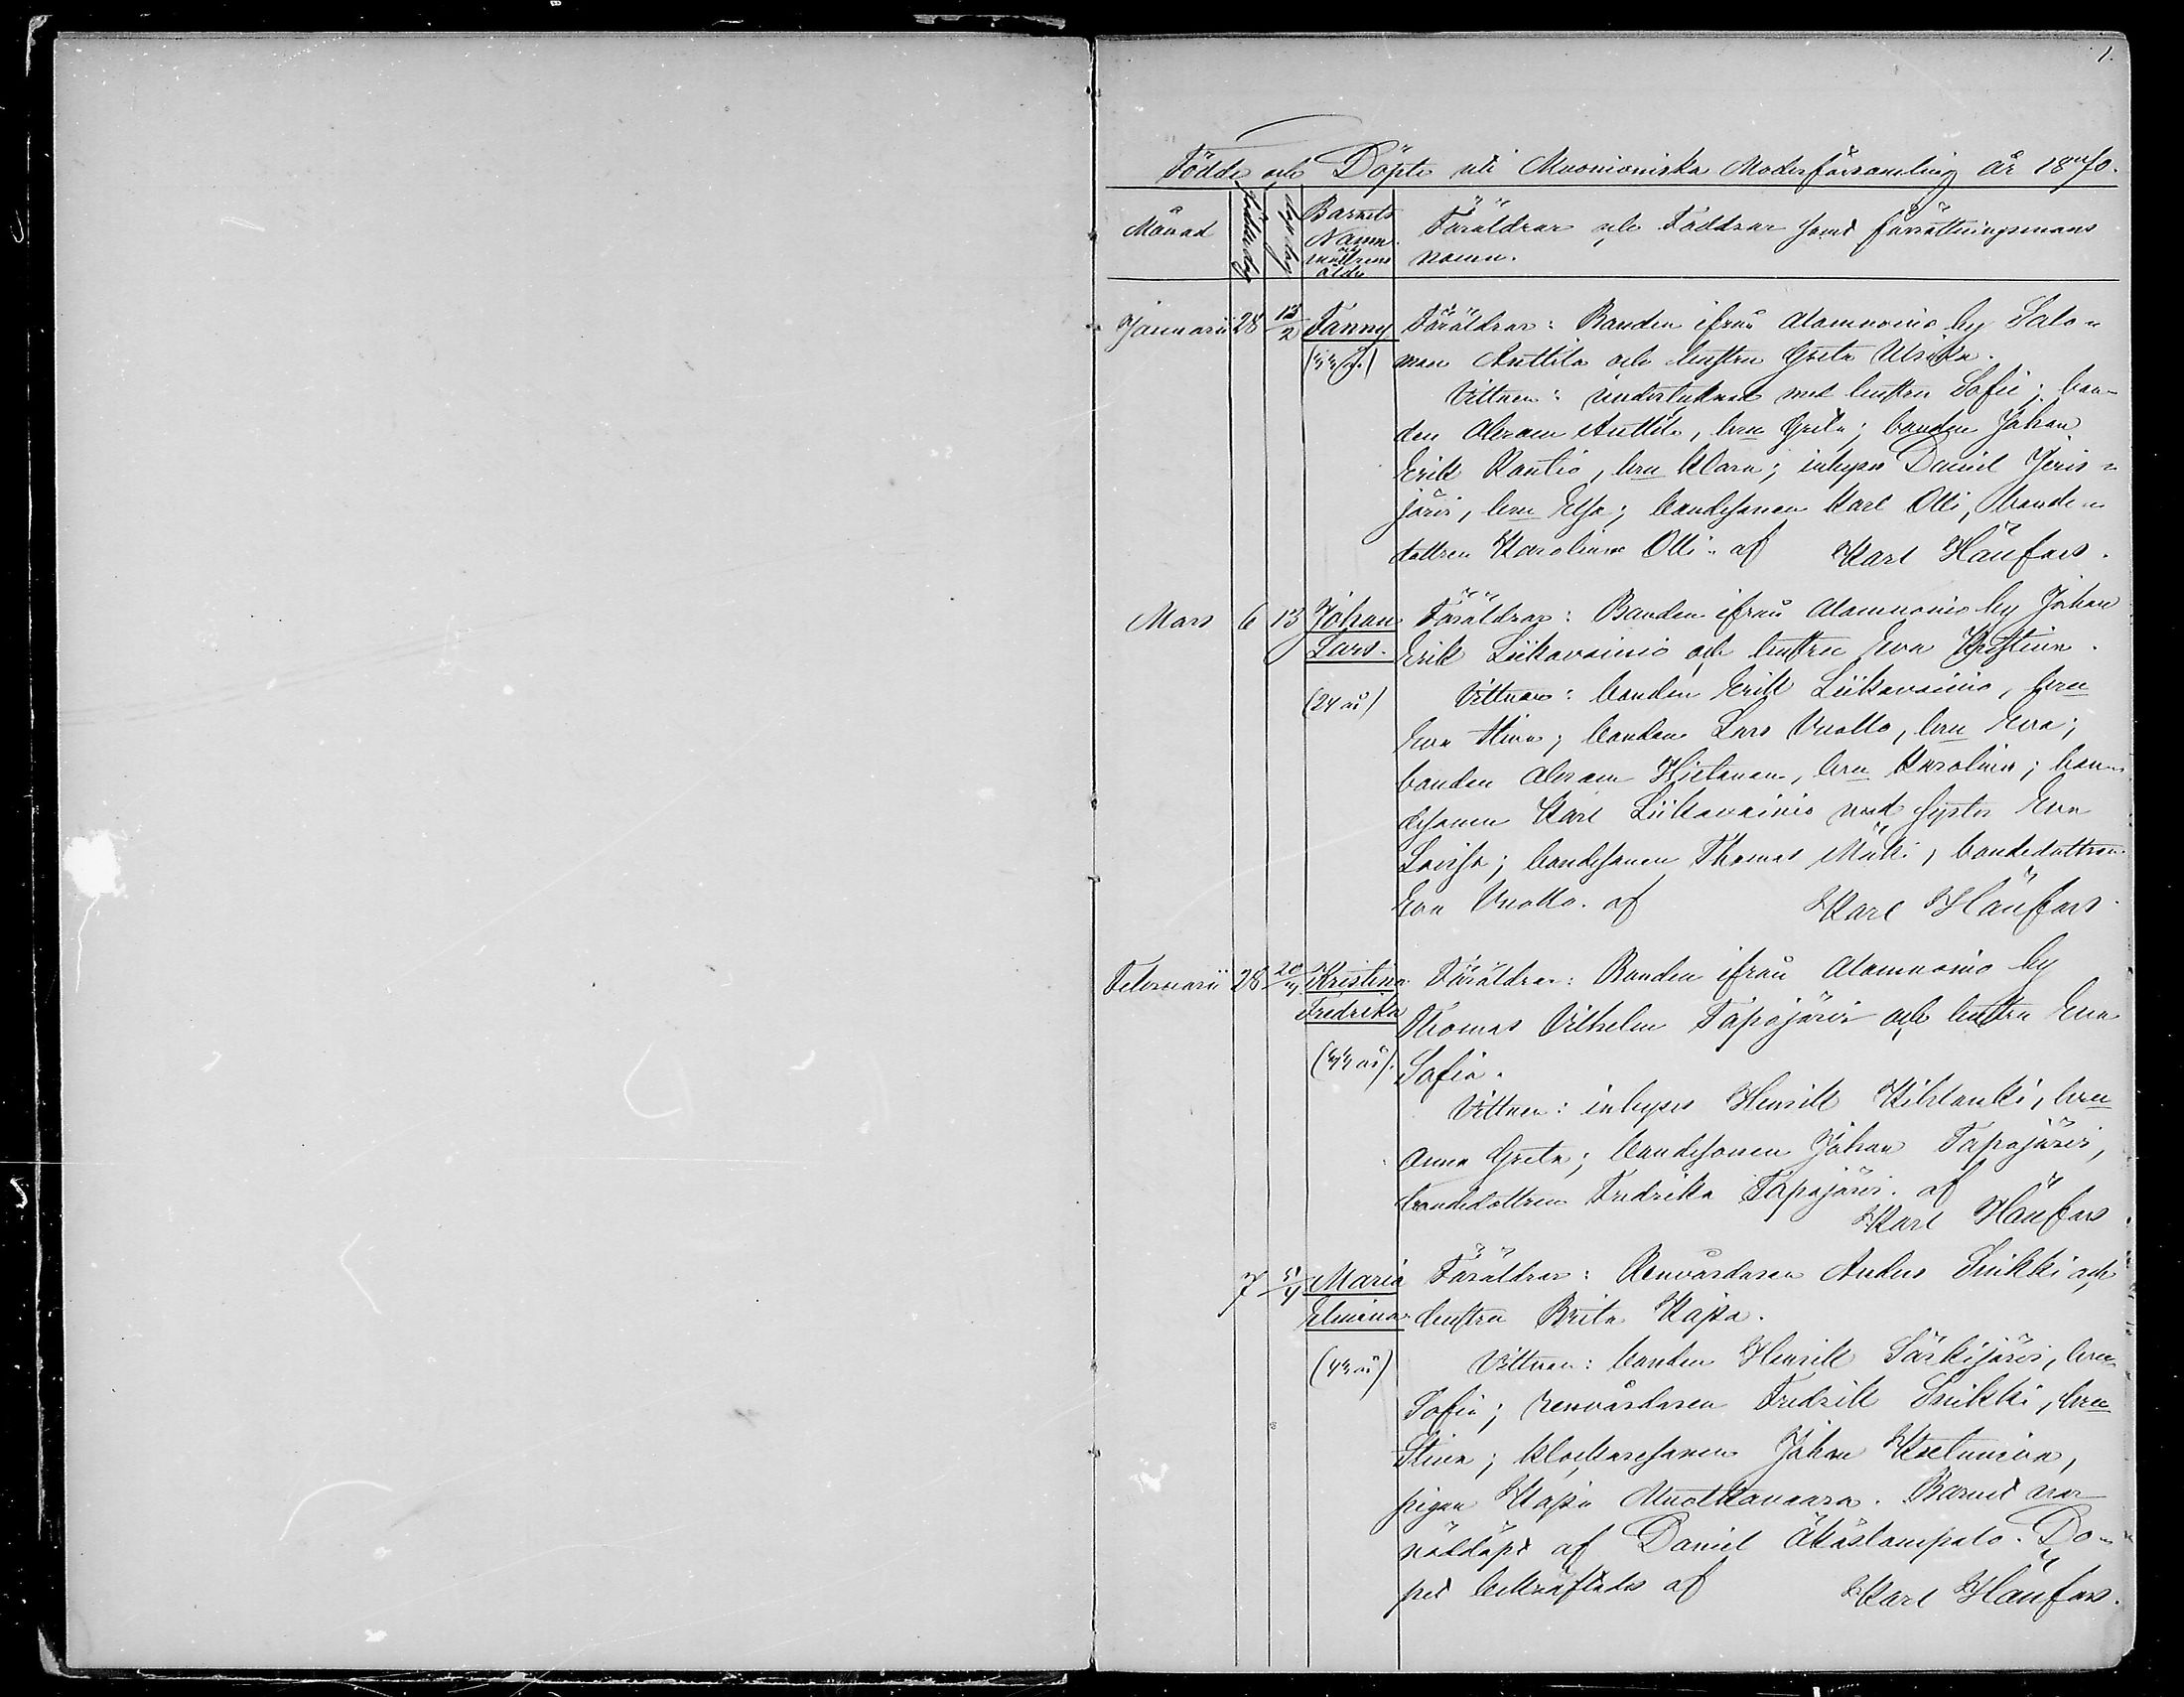 1.
Födde och Döpte uti Muonioniska Moderförsamling år 1870.
Månad
Födelsedag
Dopdag
Barnets Namn och modrens ålder
Föräldrar och Faddrar samt förrättningsmans namn.
Januarii 28 13/2 Fanny Föräldrar: Bonden ifrån Alamuonio by Salo-
mon Anttila och hustru Greta Ulrika.
Vittnen: undertecknad med hustru Sofie; bon-
den Abram Anttila, hru Greta; bonden Johan
Erik Rautio, hru Klara; inhyses Daniel Jeris-
järvi, hru Elsa; bondesonen Karl Olli, bonde-
dottren Karolina Olli. af Karl Hänfors.
Mars 6 13 Johan Föräldrar: Bonden ifrån Alamuonio by Johan
Lars. Erik Liikavainio och hustru Eva Kristina.
(24 år) Vittnen: bonden Erik Liikavainio, hru
Eva Stina; bonden Lars Vuollo, hru Eva;
bonden Abram Hietanen, hru Karolina; bon-
desonen Karl Liikavainio med syster Eva
Lovisa; bondesonen Thomas Mäki, bondedottren
Eva Vuollo. af Karl Hänfors.
Februarii 28 20/3 Kristina Föräldrar: Bonden ifrån Alamuonio by
Fredrika Thomas Vilhelm Tapojärvi och hustru Eva
Sofia.
Vittnen: inhyses Henrik Kihlanki, hru
Anna Greta; bondesonen Johan Tapojärvi,
bondedottren Fredrika Tapojärvi. af
Karl Hänfors.
7 3/4 Maria Föräldrar: Renvårdaren Anders Snikki och
Elmina hustru Brita Kajsa.
(43 år) Vittnen: bonden Henrik Särkijärvi, hru
Sofia; renvårdaren Fredrik Snikki, hru
Stina; klockaresonen Johan Kieluniva,
pigan Kajsa Muotkavaara. Barnet var
nöddöpt af Daniel Äkäslompolo. Do-
pet bekräftades af Karl Hänfors.